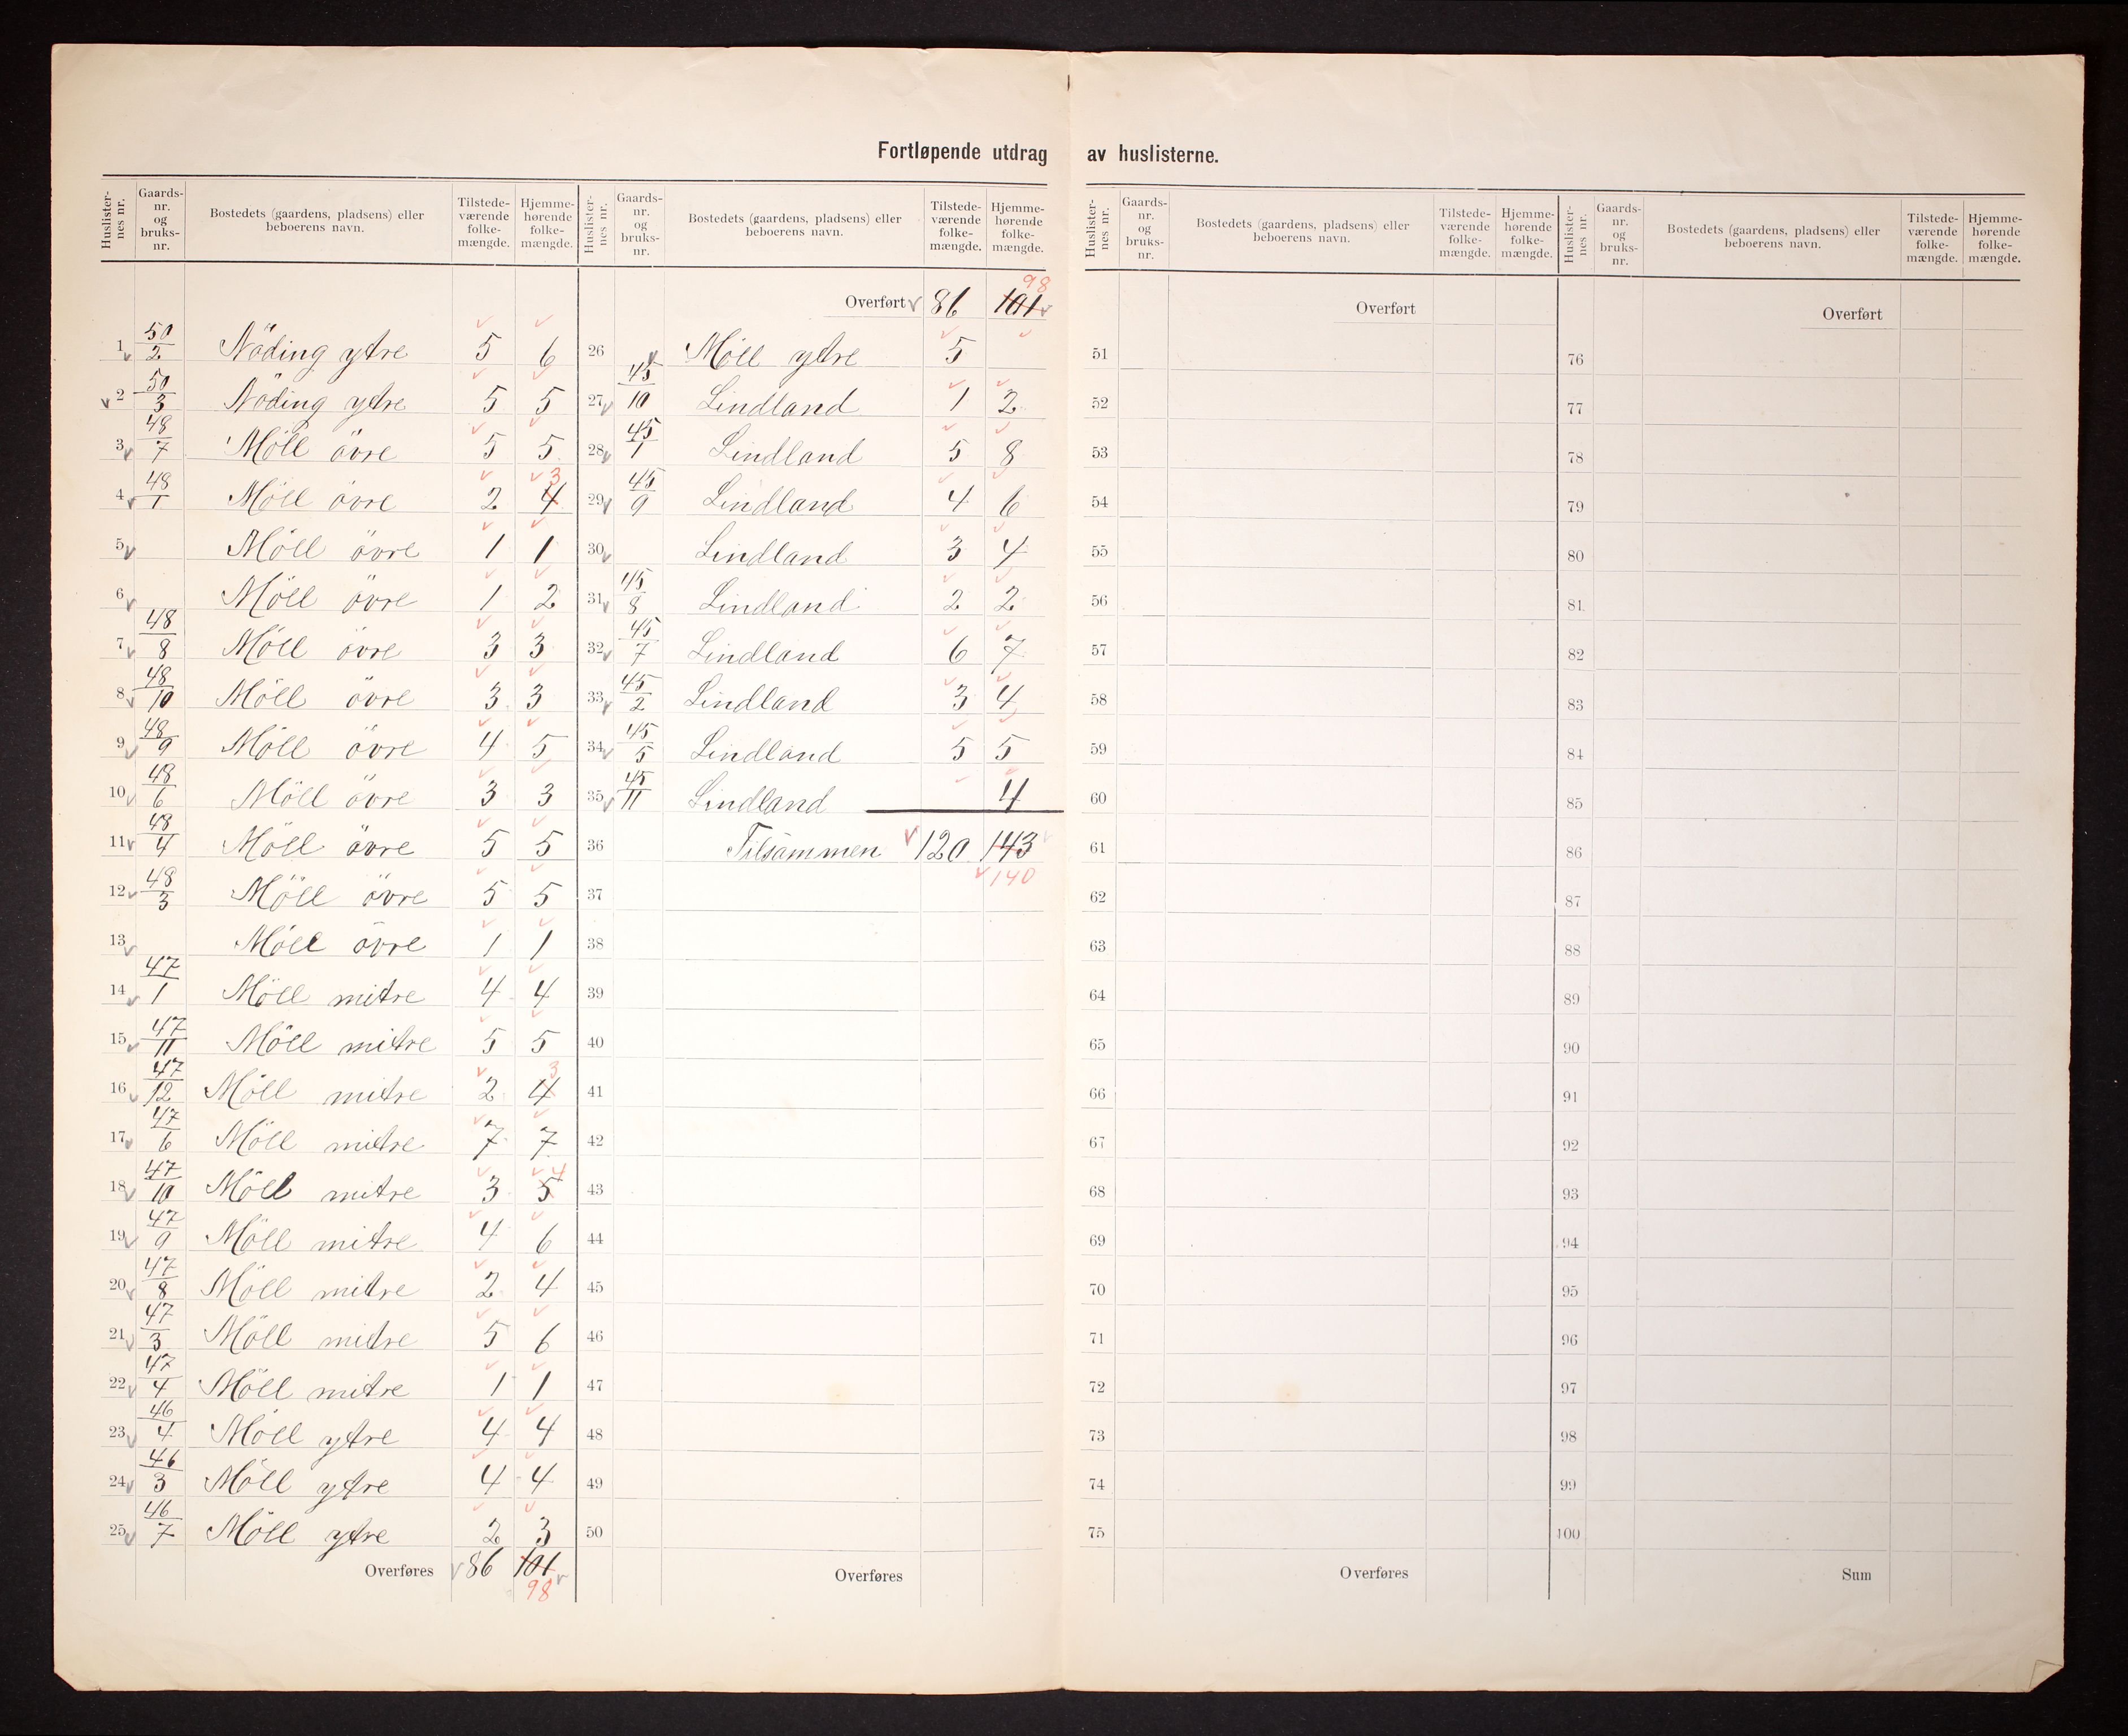 Fortløpende utdrag av huslisterne.
Huslister-nes nr. Gaards-nr. og bruks-nr. Bostedets (gaardens, pladsens) eller beboerens navn. Tilstede-værende folke-mængde. Hjemme-hørende folke-mængde.
1 50/2 Nöding ytre 5 6
2 50/3 Nöding ytre 5 5
3 48/7 Möll övre 5 5
4 48/1 Möll övre 2 4 3
5 Möll övre 1 1
6 Möll övre 1 2
7 48/8 Möll övre 3 3
8 48/10 Möll övre 3 3
9 48/9 Möll övre 4 5
10 48/6 Möll övre 3 3
11 48/4 Möll övre 5 5
12 48/3 Möll övre 5 5
13 Möll övre 1 1
14 47/1 Möll mitre 4 4
15 47/11 Möll mitre 5 5
16 47/12 Möll mitre 2 4 3
17 47/6 Möll mitre 7 7
18 47/10 Möll mitre 3 5 4
19 47/9 Möll mitre 4 6
20 47/8 Möll mitre 2 4
21 47/3 Möll mitre 5 6
22 47/4 Möll mitre 1 1
23 46/4 Möll ytre 4 4
24 46/3 Möll ytre 4 4
25 46/7 Möll ytre 2 3
Overføres 86 101
98
Huslister-nes nr. Gaards-nr. og bruks-nr. Bostedets (gaardens, pladsens) eller beboerens navn. Tilstede-værende folke-mængde. Hjemme-hørende folke-mængde.
98
Overført 86 101
26 Möll ytre 5
27 45/10 Lindland 1 2
28 45/1 Lindland 5 8
29 45/9 Lindland 4 6
30 Lindland 3 4
31 45/8 Lindland 2 2
32 45/7 Lindland 6 7
33 45/2 Lindland 3 4
34 45/5 Lindland 5 5
35 45/11 Lindland 4
36 Tilsammen 120 143
140
37
38
39
40
41
42
43
44
45
46
47
48
49
50
Overføres
Huslister-nes nr. Gaards-nr. og bruks-nr. Bostedets (gaardens, pladsens) eller beboerens navn. Tilstede-værende folke-mængde. Hjemme-hørende folke-mængde.
Overført
51
52
53
54
55
56
57
58
59
60
61
62
63
64
65
66
67
68
69
70
71
72
73
74
75
Overføres
Huslister-nes nr. Gaards-nr. og bruks-nr. Bostedets (gaardens, pladsens) eller beboerens navn. Tilstede-værende folke-mængde. Hjemme-hørende folke-mængde.
Overført
76
77
78
79
80
81
82
83
84
85
86
87
88
89
90
91
92
93
94
95
96
97
98
99
100
Sum